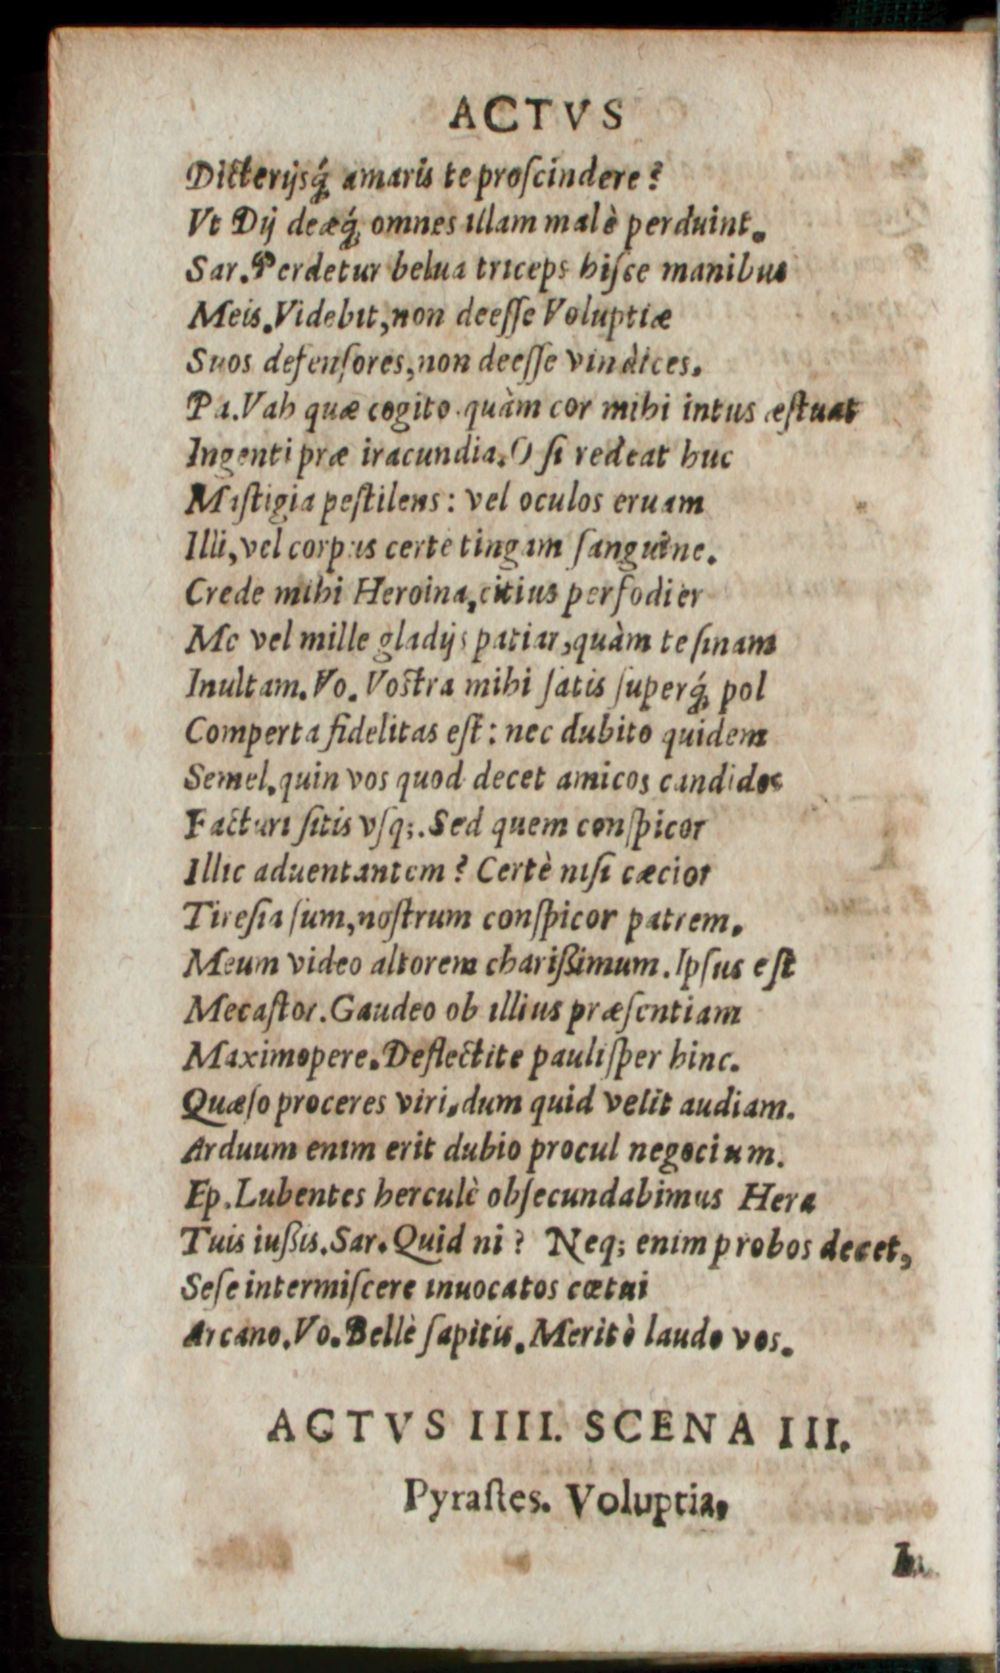 ACTVS
Dicterijsq́; amaris te proſcindere?
Vt Dij deæq́; omnes illam malè perduint.
Sar. Perdetur belua triceps hiſce manibus
Meis. Videbit, non deeſſe Voluptiæ
Suos defenſores, non deeſſe vindices.
Pa. Vah quæ cogito. quàm cor mihi intus æſtuat
Ingenti præ iracundia. O ſi redeat huc
Maſtigia peſtilens: vel oculos eruam
Illi, vel corpus certe tingam ſanguine.
Crede mihi Heroina, citius perfodier
Me vel mille gladijs patiar, quàm te ſinam
Inultam. Vo. Voſtra mihi ſatis ſuperq́; pol
Comperta fidelitas eſt: nec dubito quidem
Semel, quin vos quod decet amicos candidos
Facturi ſitis vſq;. Sed quem conſpicor
Illic aduentantem? Certè niſi cæcior
Tireſia ſum, noſtrum conſpicor patrem.
Meum video altorem charißimum. Ipſus eſt
Mecaſtor. Gaudeo ob illius præſentiam
Maximopere. Deflectite pauliſper hinc.
Quæſo proceres viri, dum quid velit audiam.
Arduum enim erit dubio procul negocium.
Ep. Lubentes herculè obſecundabimus Hera
Tuis iußis. Sar. Quid ni? Neq; enim probos decet,
Seſe intermiſcere inuocatos cœtui
Arcano. Vo. Bellè ſapitis. Meritò laudo vos.
ACTVS IIII. SCENA III.
Pyraſtes. Voluptia.